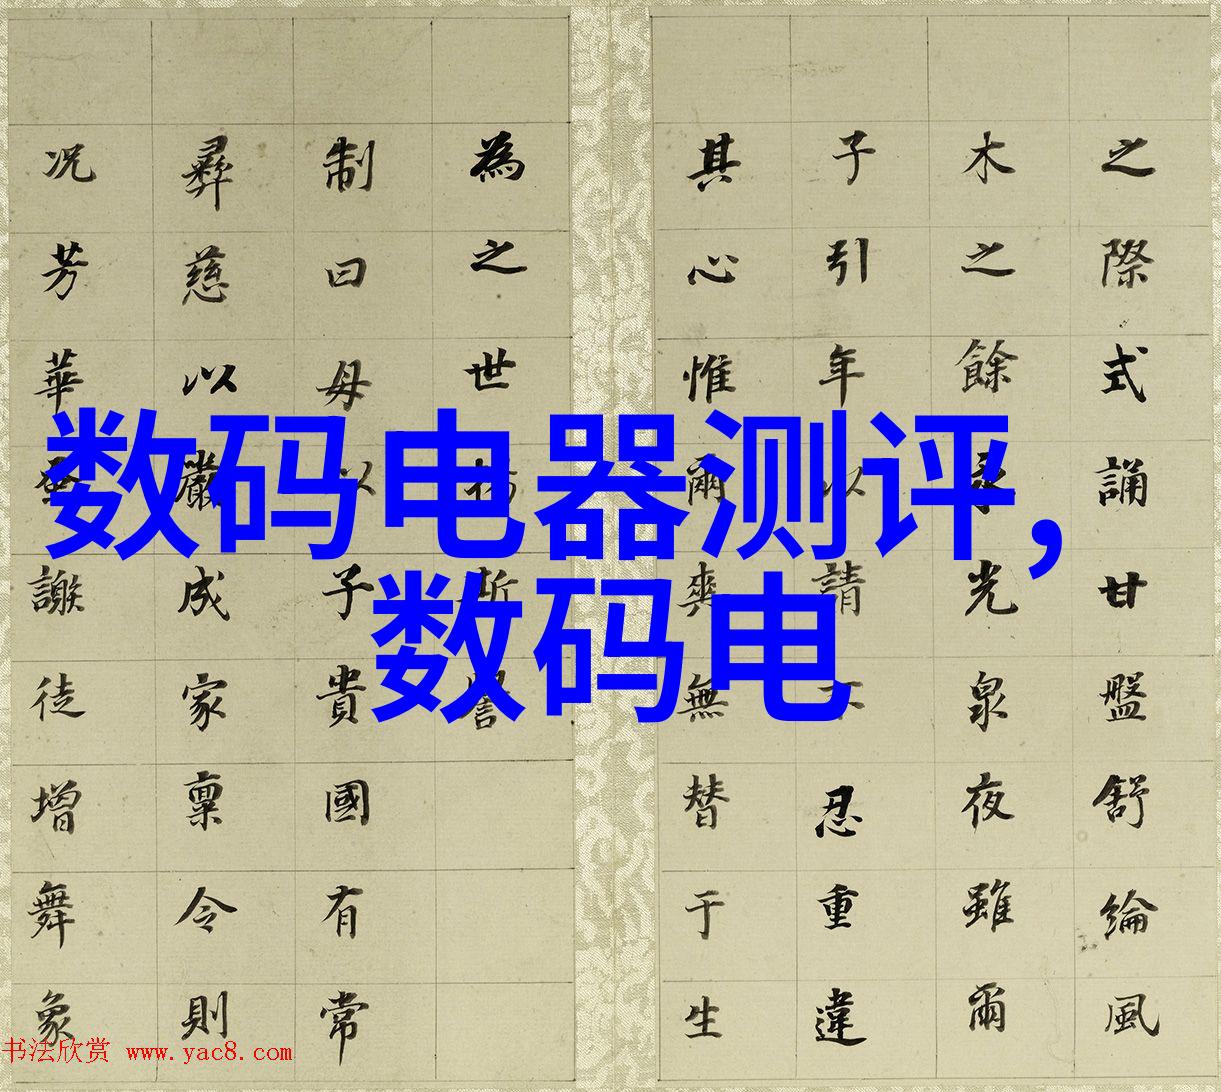 数码电器测评,
数码电
之際式誦甘盤舒綸風
木之餘光泉夜雖爾
子引年以請不忍重違
其心惟爾爽無替于生
為之世斯
制曰母以子貴國有常
彝慈以嚴成家稟令則
况芳華蚤謝徒增舞象
书法欣赏 www.yac8.com